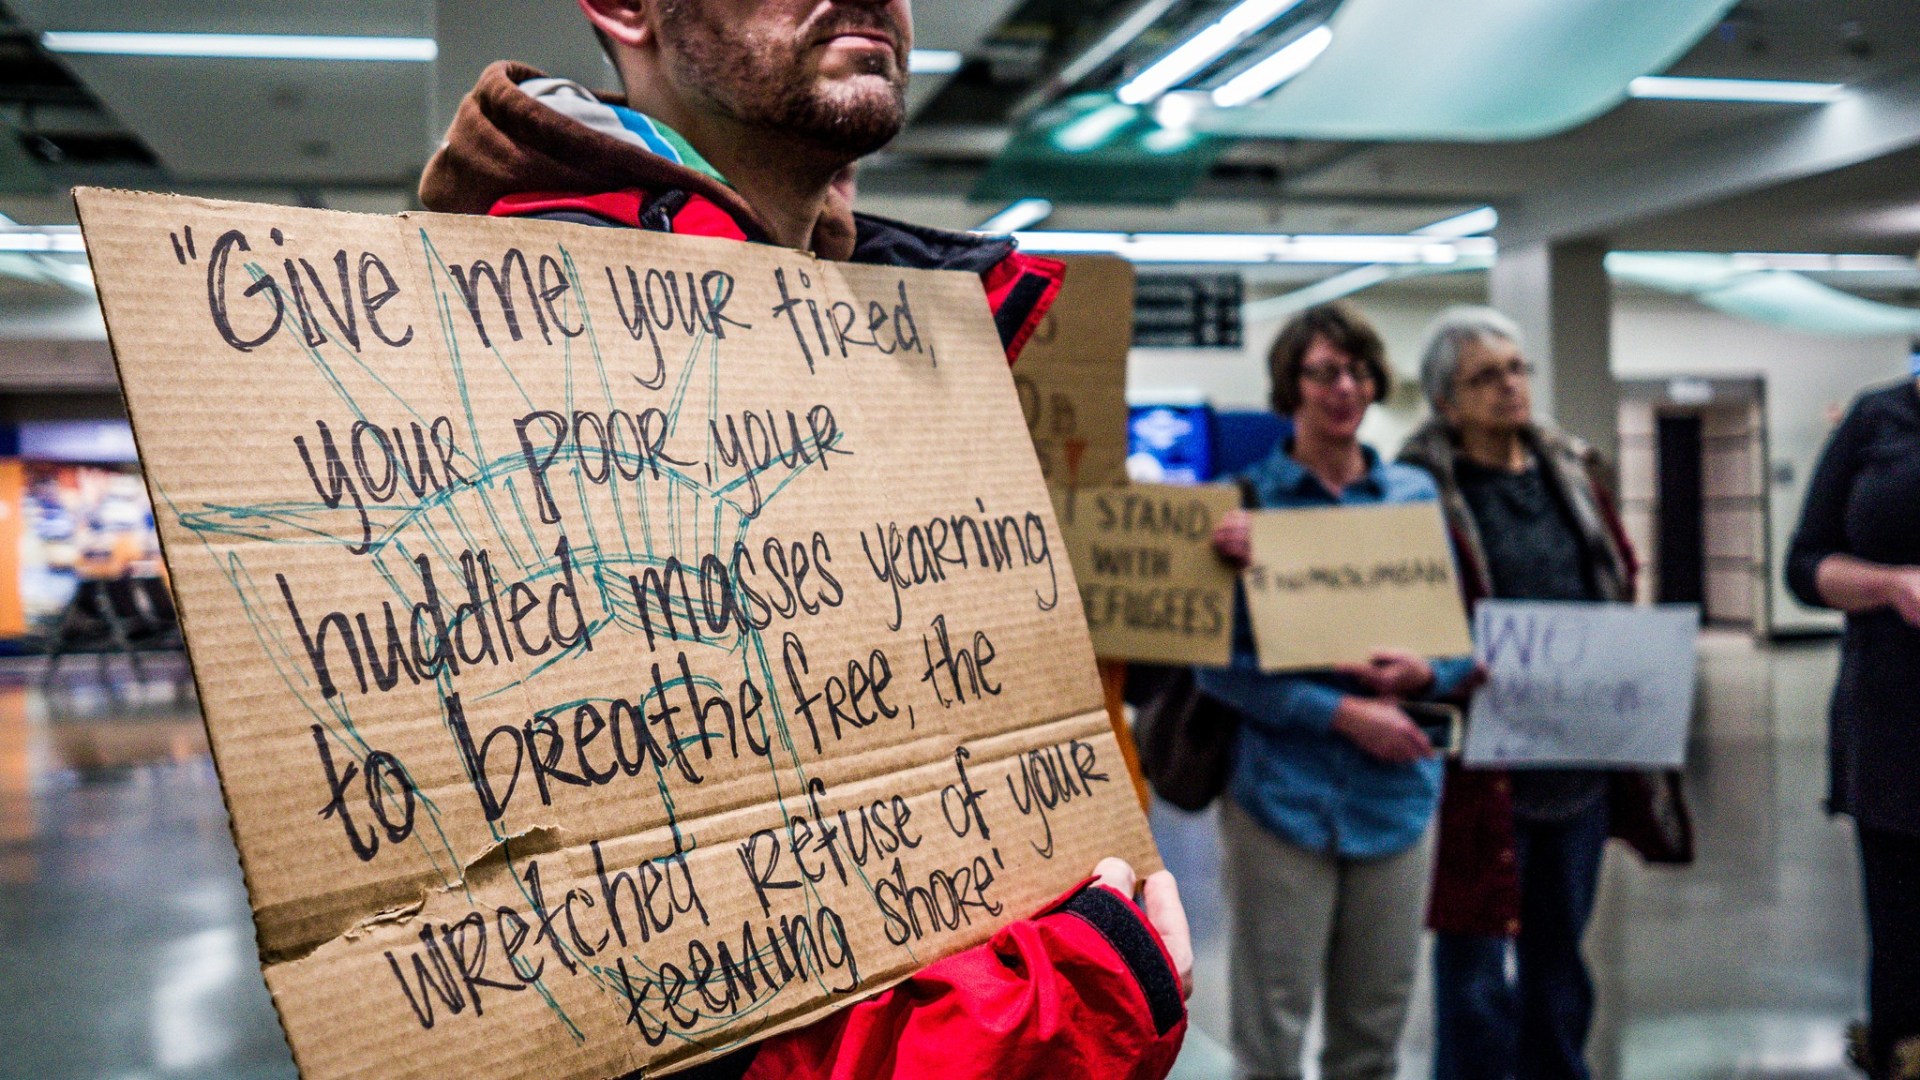 "Give me your tired,
your poor, your
huddled masses yearning
to breathe free, the
wretched refuse of your
teeming shore"
STAND
WITH
REFUGEES
#NOMUSLIMBAN